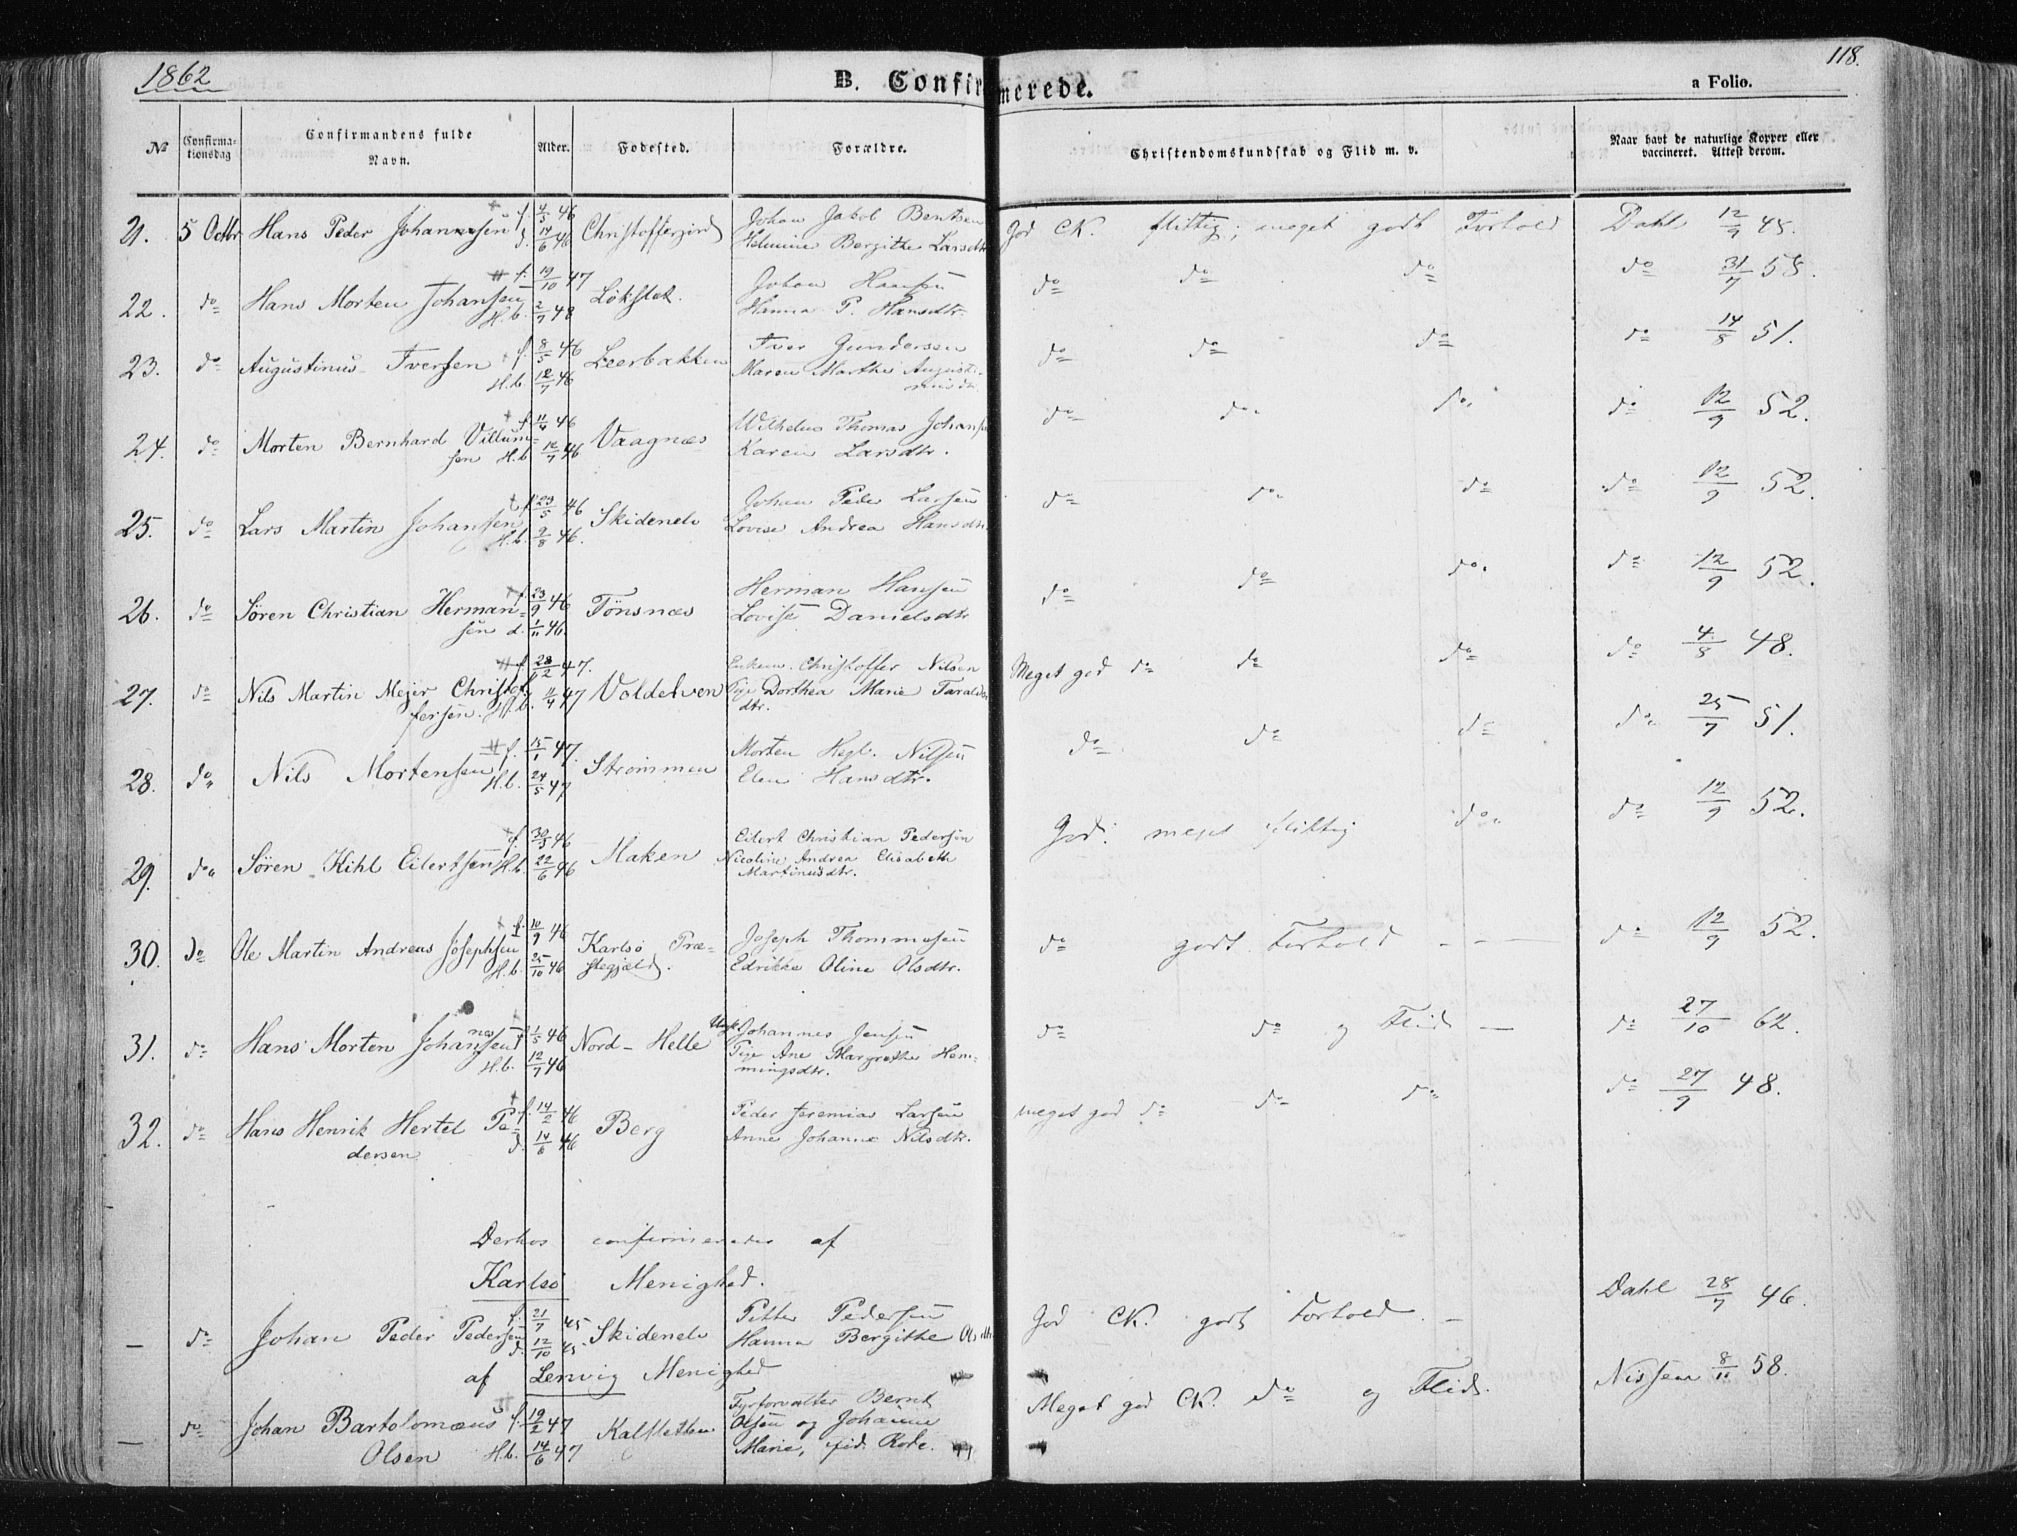 1862
B. Confirmerede.
118.
a Folio.
№ Confirmationsdag Confirmandens fulde Navn. Alder. Fødested. Forældre. Christendomskundskab og Flid m. v. Naar havt de naturlige Kopper eller vaccineret. Attest derom.
21. 5 Octbr Hans Peder Johannesen f. 4/5 46 Christofferjord Johan Jakob Bentsen God CK. flittig; meget godt Forhold Dahl 12/9 48.
d. 14/6 46 Helmine Bergitha Larsdtr
22. do Hans Morten Johansen f. 19/10 47 Løkslet. Johan Hansen do do do do 31/7 58.
H.b. 2/7 48 Hanna P. Hansdtr.
23. do Augustinus Iversen f. 8/5 46 Leerbakken Iver Gundersen do do do do 14/8 51.
H.b. 12/7 46 Maren Marthe Augusti-
nusdtr
24. do Morten Bernhard Villum- f. 11/4 46 Vaagnæs Wilhelm Thomas Johans do do do do 12/9 52.
sen H.b. 12/7 46 Karen Larsdtr.
25. do Lars Martin Johansen f. 23/5 46 Skidenelv Johan Peder Larsen do do do do 12/9 52.
H.b. 9/8 46. Lovise Andrea Hansdtr.
26. do Søren Christian Herman- f. 23/9 46 Tønsnæs Herman Hansen do do do do 12/9 52.
sen d. 1/11 46. Lovise Danielsdtr
27. do Nils Martin Mejer Christof- f. 28/2 47. Voldelven Enkem. Christoffer Nilsen Meget god do do do do 4/8 48.
fersen. H.b. 11/4 47 Pige Dorthea Marie Taralds-
dtr.
28. do Nils Mortensen f. 15/1 47. Strømmen Morten Hegl. Nilsen do do do do 25/7 51.
H.b. 24/5 47 Elen Hansdtr.
29. do Søren Kihl Eilertsen f. 30/3 46 Maken Eilert Christian Pedersen God. meget flittig do do 12/9 52.
H.b. 22/6 46 Nicoline Andrea Elisabeth
Martinusdtr.
30. do Ole Martin Andreas Josephsen f. 10/9 46 Karlsö Præ- Joseph Thommasen do godt Forhold — — do 12/9 52.
H.b. 25/10 46 stegjæld. Edrikke Oline Olsdtr.
31. do Hans Morten Johannesen f. 1/5 46 Nord-Helle Ungk. Johannes Jensen do do og Flid — do 27/10 62.
H.b. 12/7 46 Pige Ane Margrethe Hem-
mingsdtr.
32. do Hans Henrik Hertel Pe- f. 14/2 46 Berg Peder Jeremias Larsen meget god do do do do 27/9 48.
dersen d. 14/6 46 Anne Johanne Nilsdtr.
Derhos confirmeredes af
Karlsö Menighed.
— do Johan Peder Pedersen f. 21/7 45 Skidenelv Petter Pedersen God CK. godt Forhold. — Dahl 28/7 46.
d. 12/10 45. Hanna Bergithe Olsdtr
af Lenvig Menighed
— do Johan Bartolomæus f. 19/2 47 Kalsletten Fyrforvalter Bernt Meget god CK. do og Flid. Nissen 8/11 58.
Olsen H.b. 14/6 47 Olsen og Johanne
Marie, fød Rode.